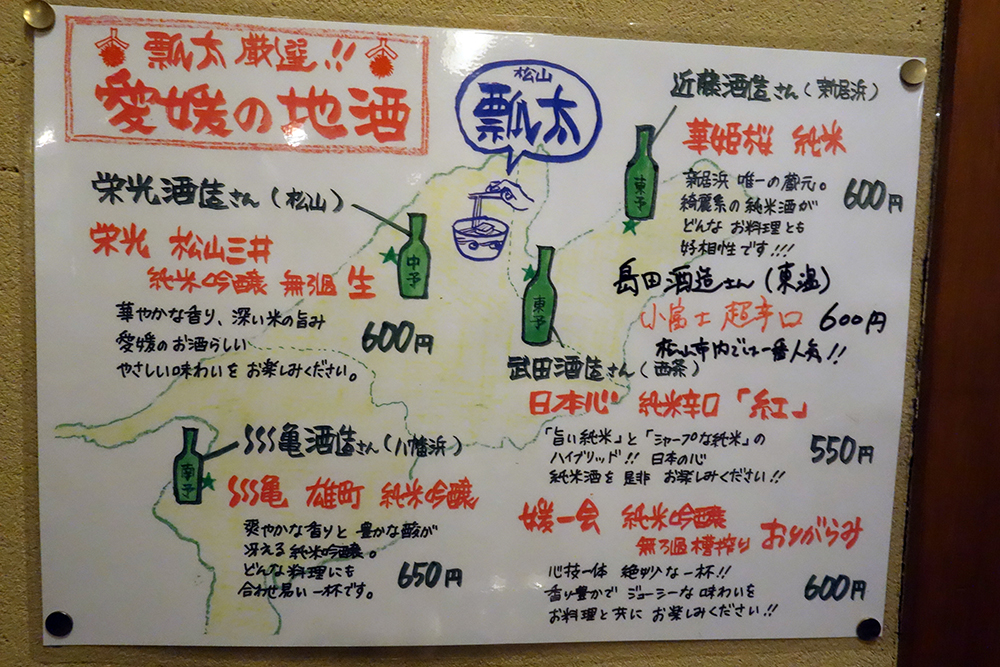 瓢太 厳選!!
愛媛の地酒
松山
瓢太
栄光酒造さん(松山)
栄光 松山三井
純米吟醸 無濾過 生
華やかな香り、深い米の旨み
愛媛のお酒らしい
やさしい味わいを お楽しみください。
600円
中予
近藤酒造さん(新居浜)
華姫桜 純米
新居浜 唯一の蔵元。
綺麗系の純米酒が
どんな お料理とも
好相性です!!!
600円
東予
島田酒造さん(東温)
小富士 超辛口 600円
松山市内では一番人気!!
東予
武田酒造さん(西条)
日本心 純米辛口「紅」
「旨い純米」と「シャープな純米」の
ハイブリッド!! 日本の心
純米酒を是非 お楽しみください!!
550円
南予
川亀酒造さん(八幡浜)
川亀 雄町 純米吟醸
爽やかな香りと 豊かな酸が
冴える純米吟醸。
どんな料理にも
合わせ易い一杯です。
650円
媛一会 純米吟醸
無濾過槽搾り おりがらみ
心技一体 絶妙な一杯!!
香り豊かで ジューシーな味わいを
お料理と共に お楽しみください!!
600円